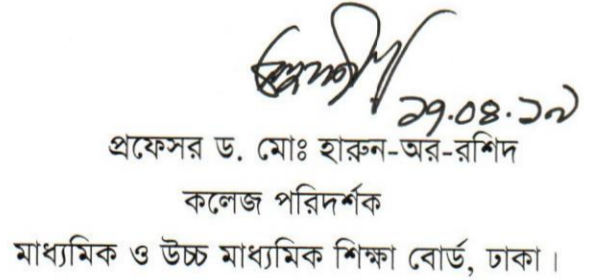 ২৭.০৪.১৯
প্রফেসর ড. মোঃ হারুন-অর-রশিদ
কলেজ পরিদর্শক
মাধ্যমিক ও উচ্চ মাধ্যমিক শিক্ষা বোর্ড, ঢাকা।